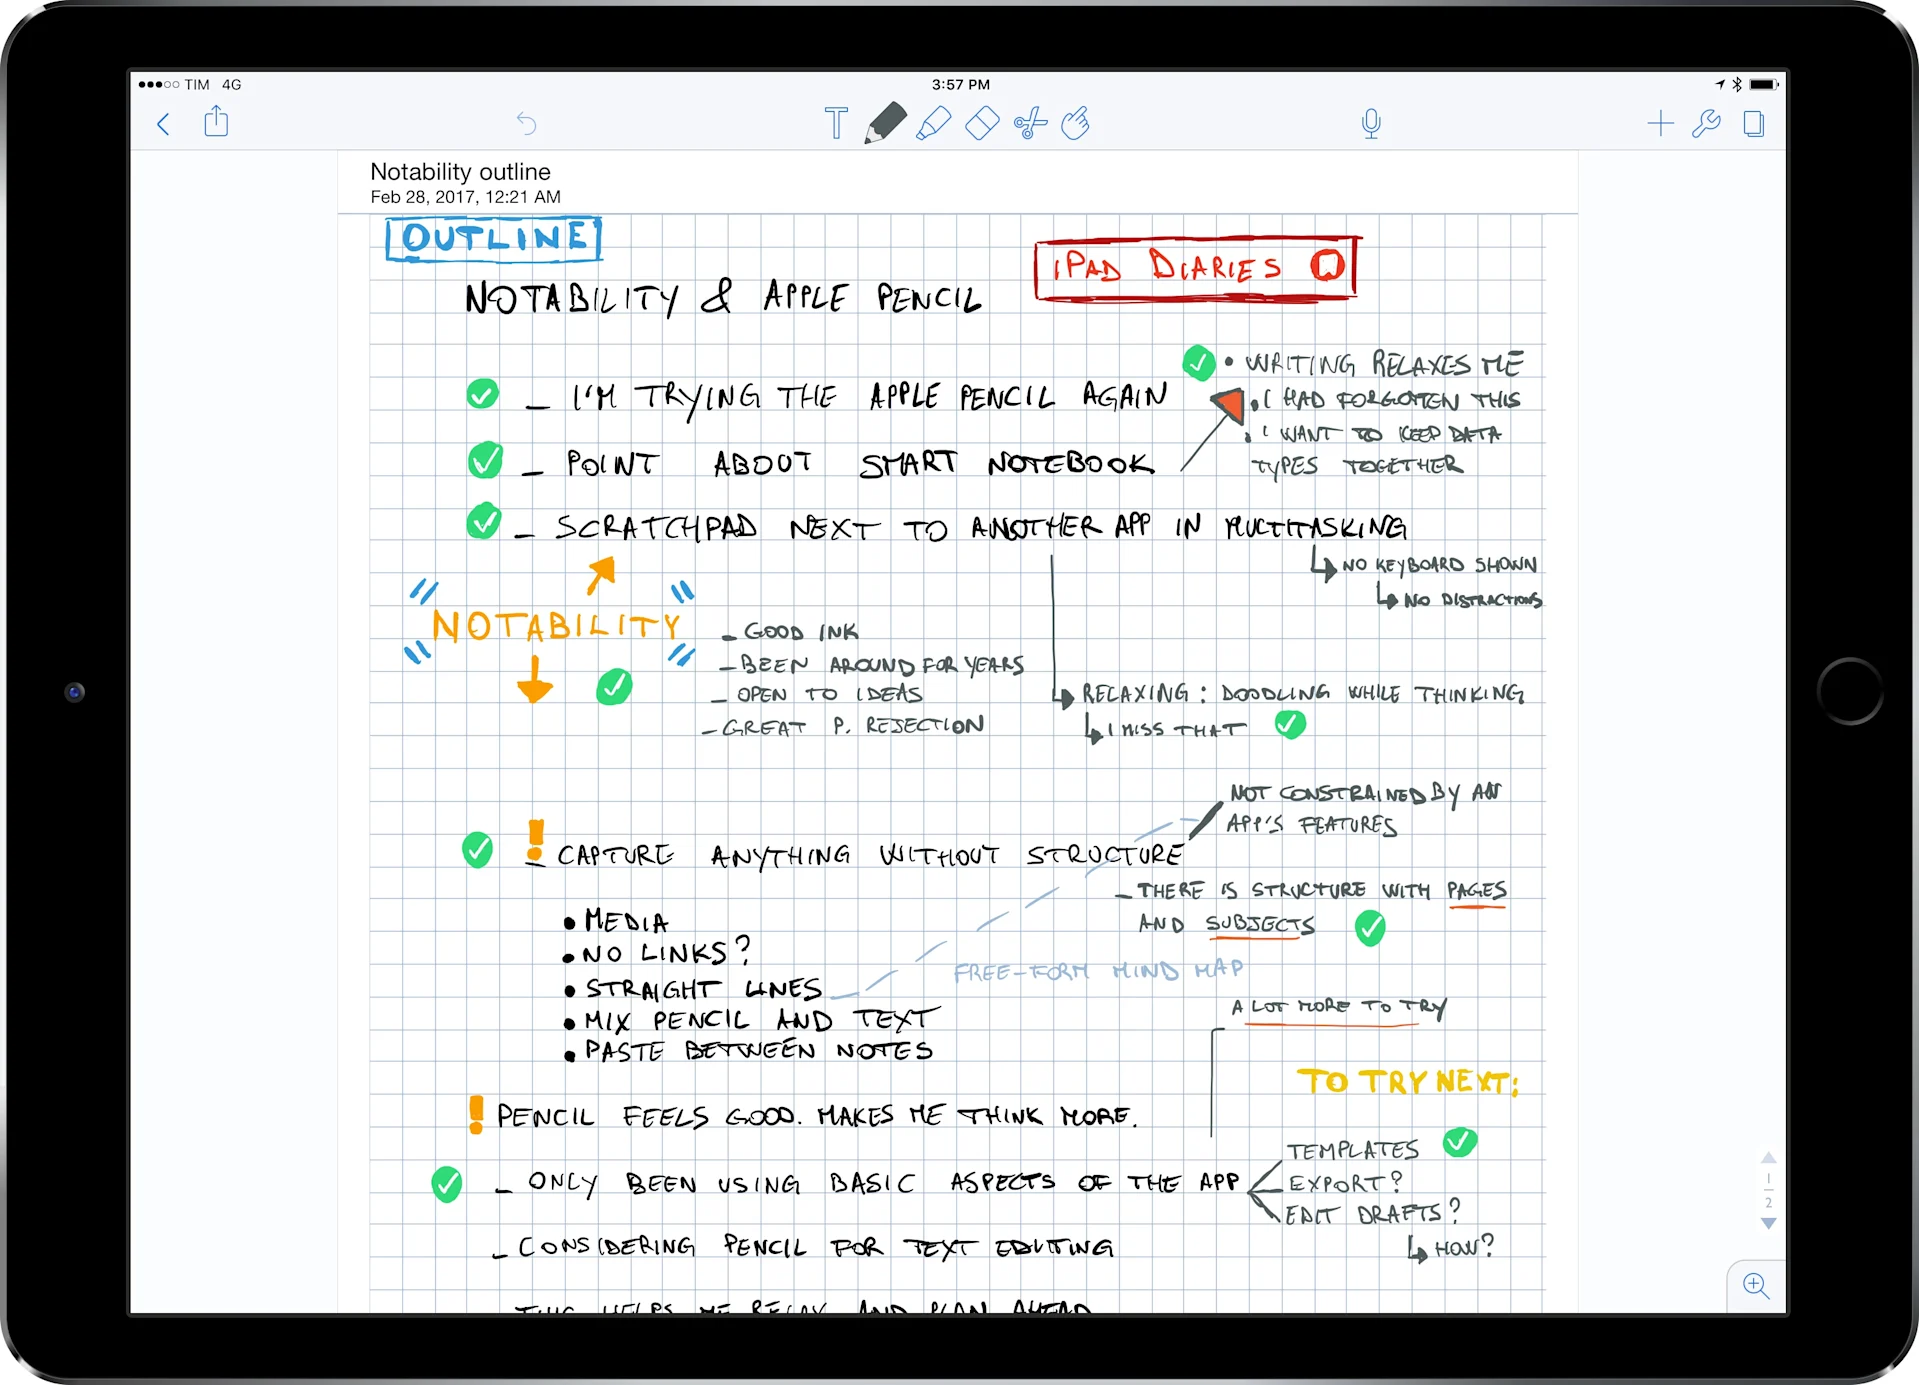 TIM 4G
3:57 PM
Notability outline
Feb 28, 2017, 12:21 AM
OUTLINE
iPAD DIARIES
NOTABILITY & APPLE PENCIL
• WRITING RELAXES ME
– I'M TRYING THE APPLE PENCIL AGAIN
• I HAD FORGOTTEN THIS
• I WANT TO KEEP DATA
TYPES TOGETHER
– POINT ABOUT SMART NOTEBOOK
– SCRATCHPAD NEXT TO ANOTHER APP IN MULTITASKING
NO KEYBOARD SHOWN
NO DISTRACTIONS
NOTABILITY
– GOOD INK
– BEEN AROUND FOR YEARS
– OPEN TO IDEAS
– GREAT P. REJECTION
RELAXING: DOODLING WHILE THINKING
I MISS THAT
NOT CONSTRAINED BY AN
APP'S FEATURES
! – CAPTURE ANYTHING WITHOUT STRUCTURE
– THERE IS STRUCTURE WITH PAGES
AND SUBJECTS
• MEDIA
• NO LINKS?
• STRAIGHT LINES
• MIX PENCIL AND TEXT
• PASTE BETWEEN NOTES
FREE-FORM MIND MAP
A LOT MORE TO TRY
TO TRY NEXT:
! PENCIL FEELS GOOD. MAKES ME THINK MORE.
– ONLY BEEN USING BASIC ASPECTS OF THE APP
TEMPLATES
EXPORT?
EDIT DRAFTS?
HOW?
– CONSIDERING PENCIL FOR TEXT EDITING
– THIS HELPS ME RELAX AND PLAN AHEAD
1
2